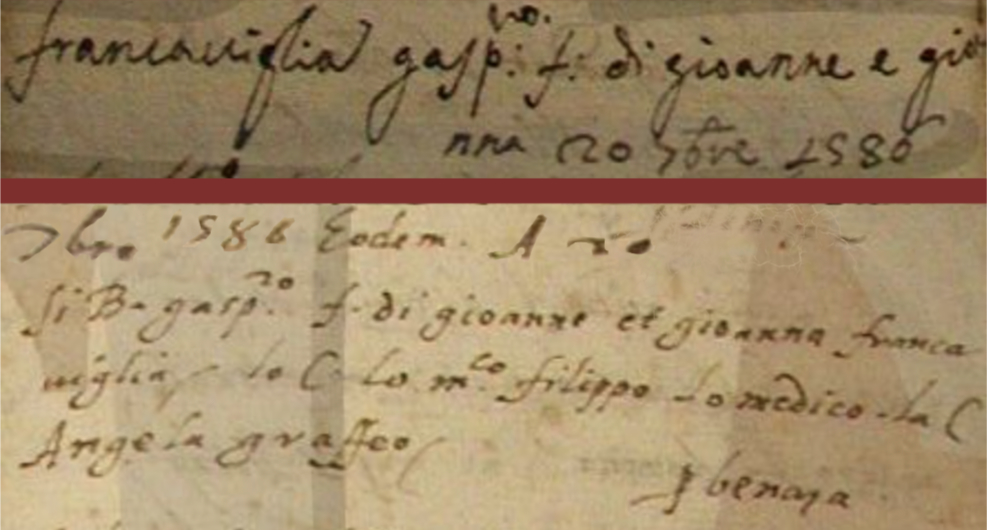 francaviglia gasp.ro f: di gioanne e gio
nna 20 7bre 1586
7bro 1586 Eodem. A 20
si B. gasp.ro f. di gioanne et gioanna franca
viglia lo C. lo m.co filippo lo medico la C
Angela graffeo
benaja